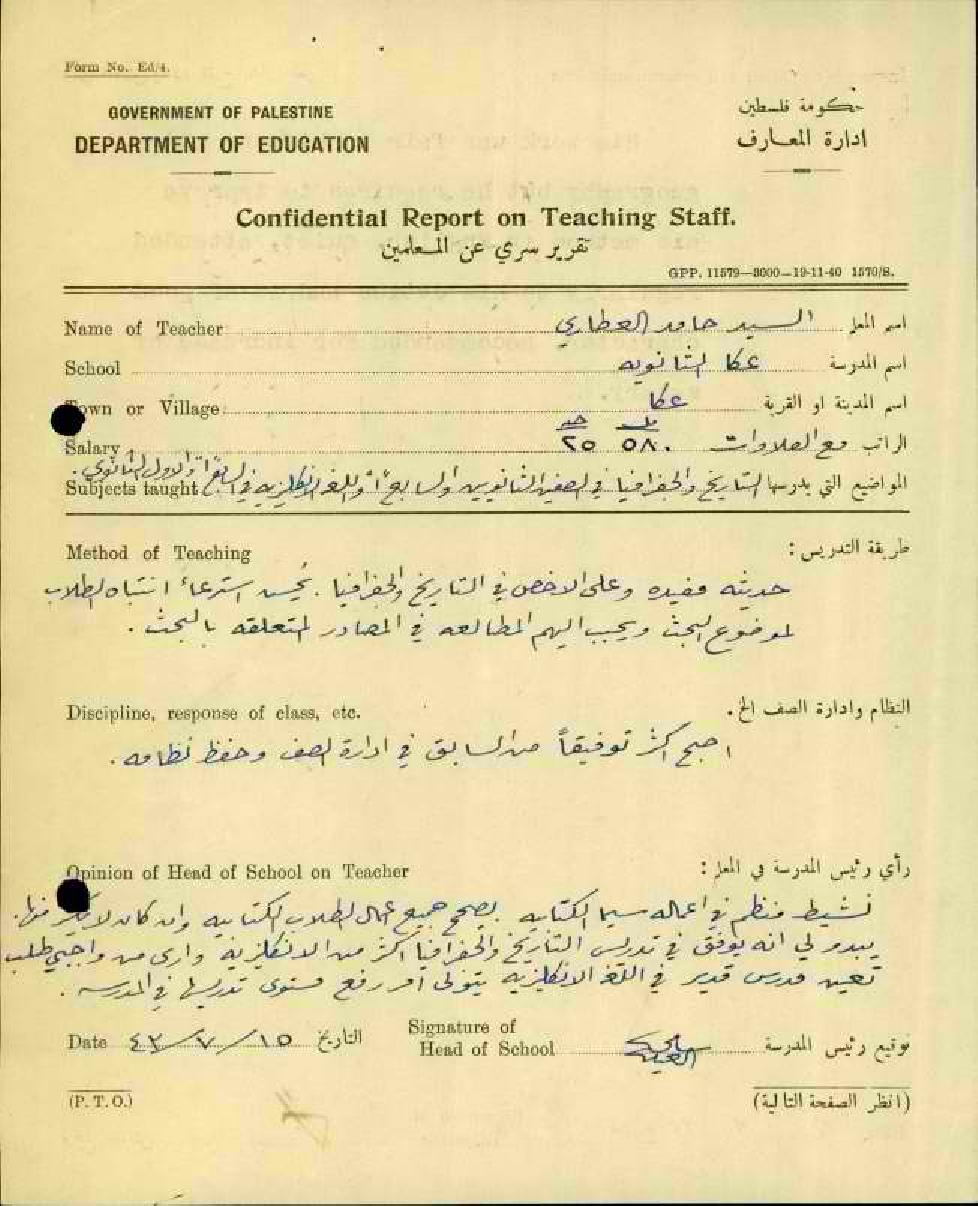 Form No. Ed/4.
GOVERNMENT OF PALESTINE
حكومة فلسطين
DEPARTMENT OF EDUCATION
ادارة المعارف
Confidential Report on Teaching Staff.
تقرير سري عن المعلمين
GPP. 11579—3000—19-11-40 1570/S.
Name of Teacher السيد حامد العطاري اسم المعلم
School عكا الثانويه اسم المدرسة
Town or Village عكا اسم المدينة او القرية
جنيه مل
Salary ٢٥ ٥٨٠ الراتب مع العلاوات
Subjects taught المواضيع التي يدرسها التاريخ والجغرافيا في الصفين الثانويين والسابع أ واللغه الانكليزيه في السابع أ والاول الثانوي.
Method of Teaching طريقة التدريس :
حديثه مفيده وعلى الاخص في التاريخ والجغرافيا. يحسن استرعاء انتباه الطلاب
لموضوع البحث ويحبب اليهم المطالعه في المصادر المتعلقه بالبحث.
Discipline, response of class, etc. النظام وادارة الصف الخ.
اصبح اكثر توفيقاً من السابق في ادارة الصف وحفظ نظامه.
Opinion of Head of School on Teacher رأي رئيس المدرسة في المعلم :
نشيط منظم في اعماله سيما الكتابيه. يصحح جميع اعمال الطلاب الكتابيه وان كان لا يكثر منها.
يبدو لي انه يوفق في تدريس التاريخ والجغرافيا اكثر من الانكليزية وارى من واجبي طلب
تعيين مدرس قدير في اللغه الانكليزيه يتولى امر رفع مستوى تدريسها في المدرسه.
Date ١٥/٧/٤٣ التاريخ
Signature of
Head of School توقيع رئيس المدرسة
(P. T. O.) (انظر الصفحة التالية)